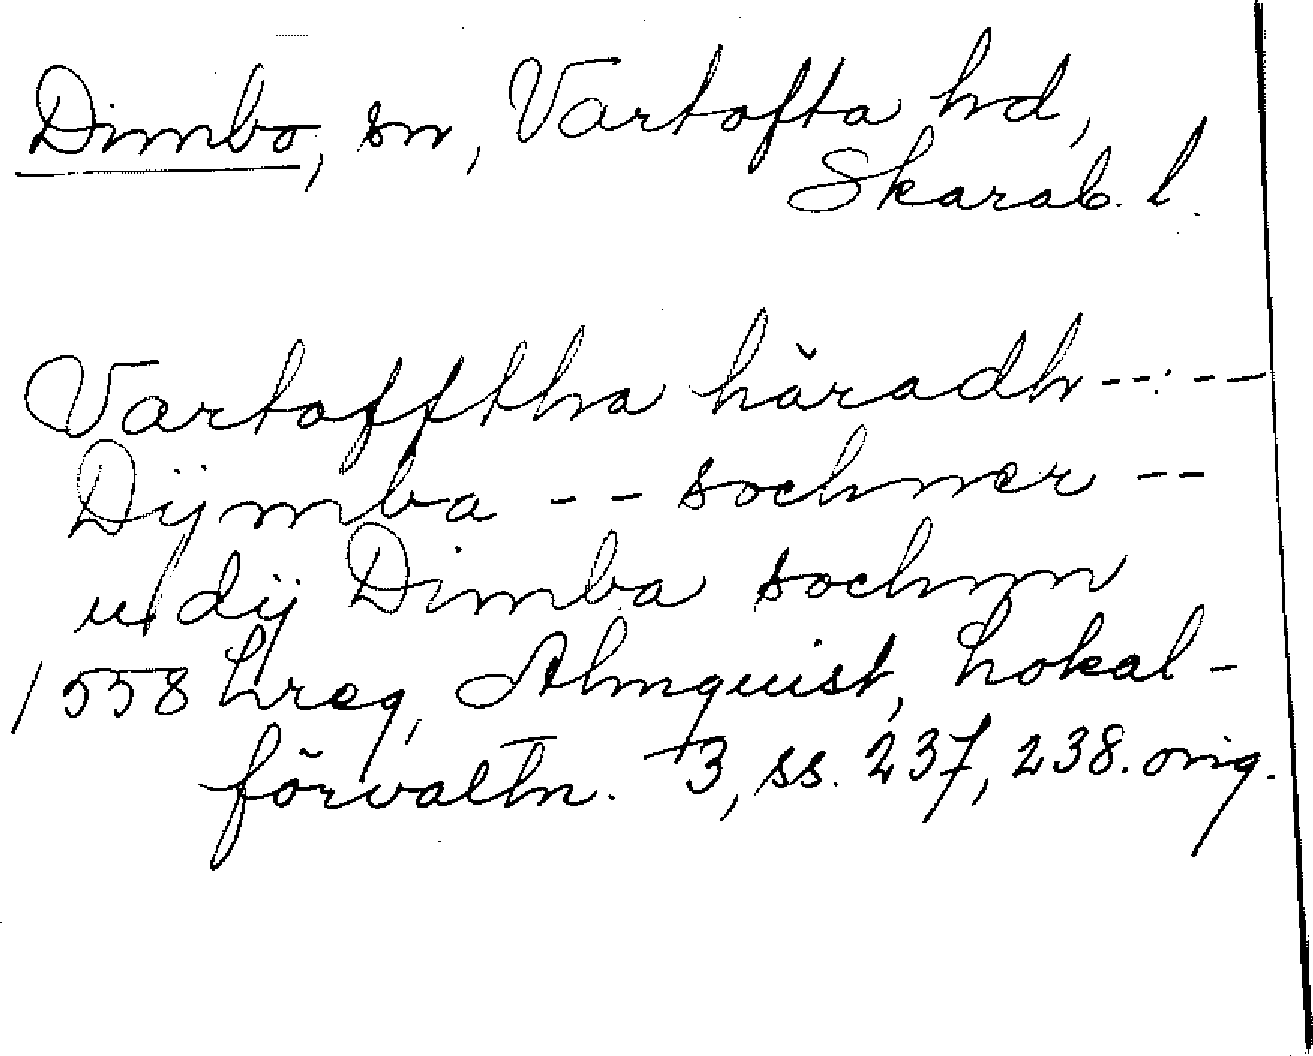 Dimbo, sn, Vartofta hd,
Skarab. l.
Vartofftha häradh -- : --
Dÿmba -- sochner --
udÿ Dimba sochnn
1558 Lreg, Almquist, Lokal-
förvaltn. 3, ss. 237, 238. orig.